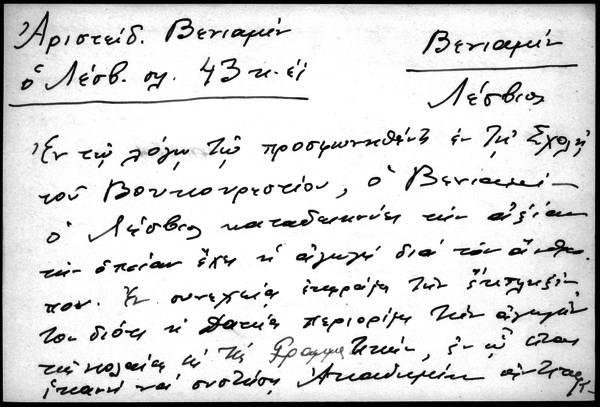 Ἀριστείδ. Βενιαμίν
ὁ Λέσβ. σλ. 43 κ. ἑξ
Βενιαμίν
Λέσβιος
Ἐν τῷ λόγῳ τῷ προσφωνηθέντι ἐν τῇ Σχολῇ
τοῦ Βουκουρεστίου, ὁ Βενιαμὶν
ὁ Λέσβιος καταδεικνύει τὴν ἀξίαν
τὴν ὁποίαν ἔχει ἡ ἀγωγὴ διὰ τὸν ἄνθρω-
πον. Ἐν συνεχείᾳ ἐκφράζει τὴν ἔκπληξίν
του διότι ἡ περιορίζει τὴν ἀγωγὴν
τῆς νεολαίας εἰς τὴν Γραμματικήν, ἐν ᾧ εἶναι
ἱκανὴ νὰ συστήσῃ Ἀκαδημίαν